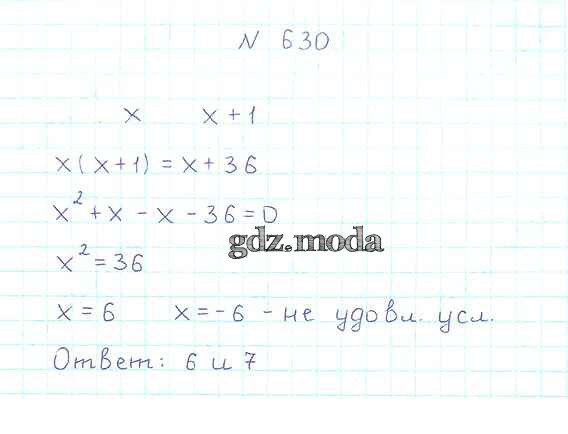 N 630
x x + 1
x(x+1) = x + 36
x² + x - x - 36 = 0
gdz.moda
x² = 36
x = 6 x = -6 - не удовл. усл.
Ответ: 6 и 7